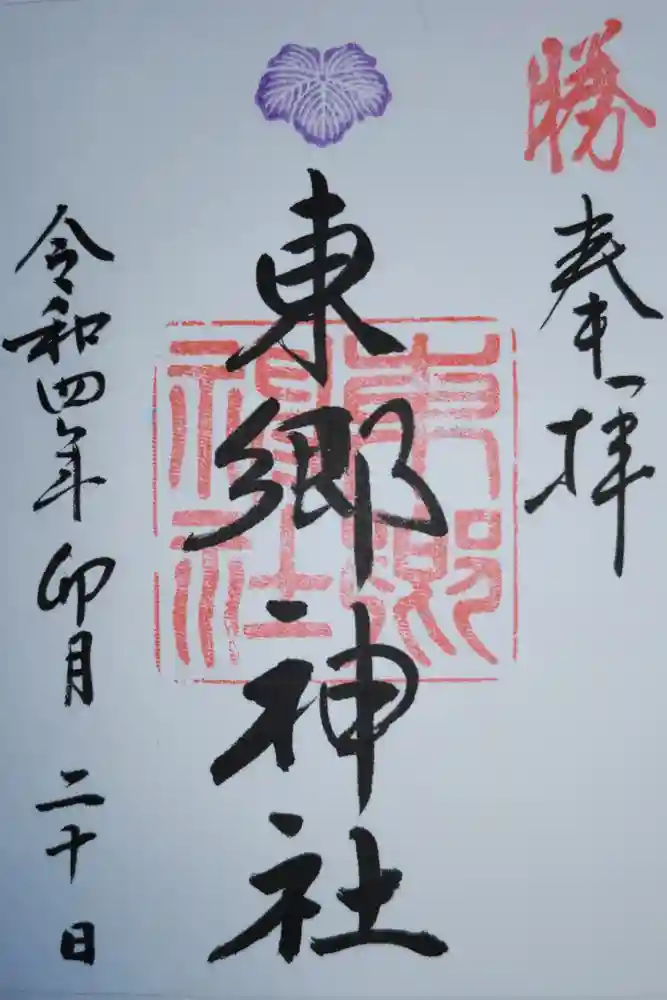 勝
奉拝
東郷神社
東郷神社
令和四年卯月二十日